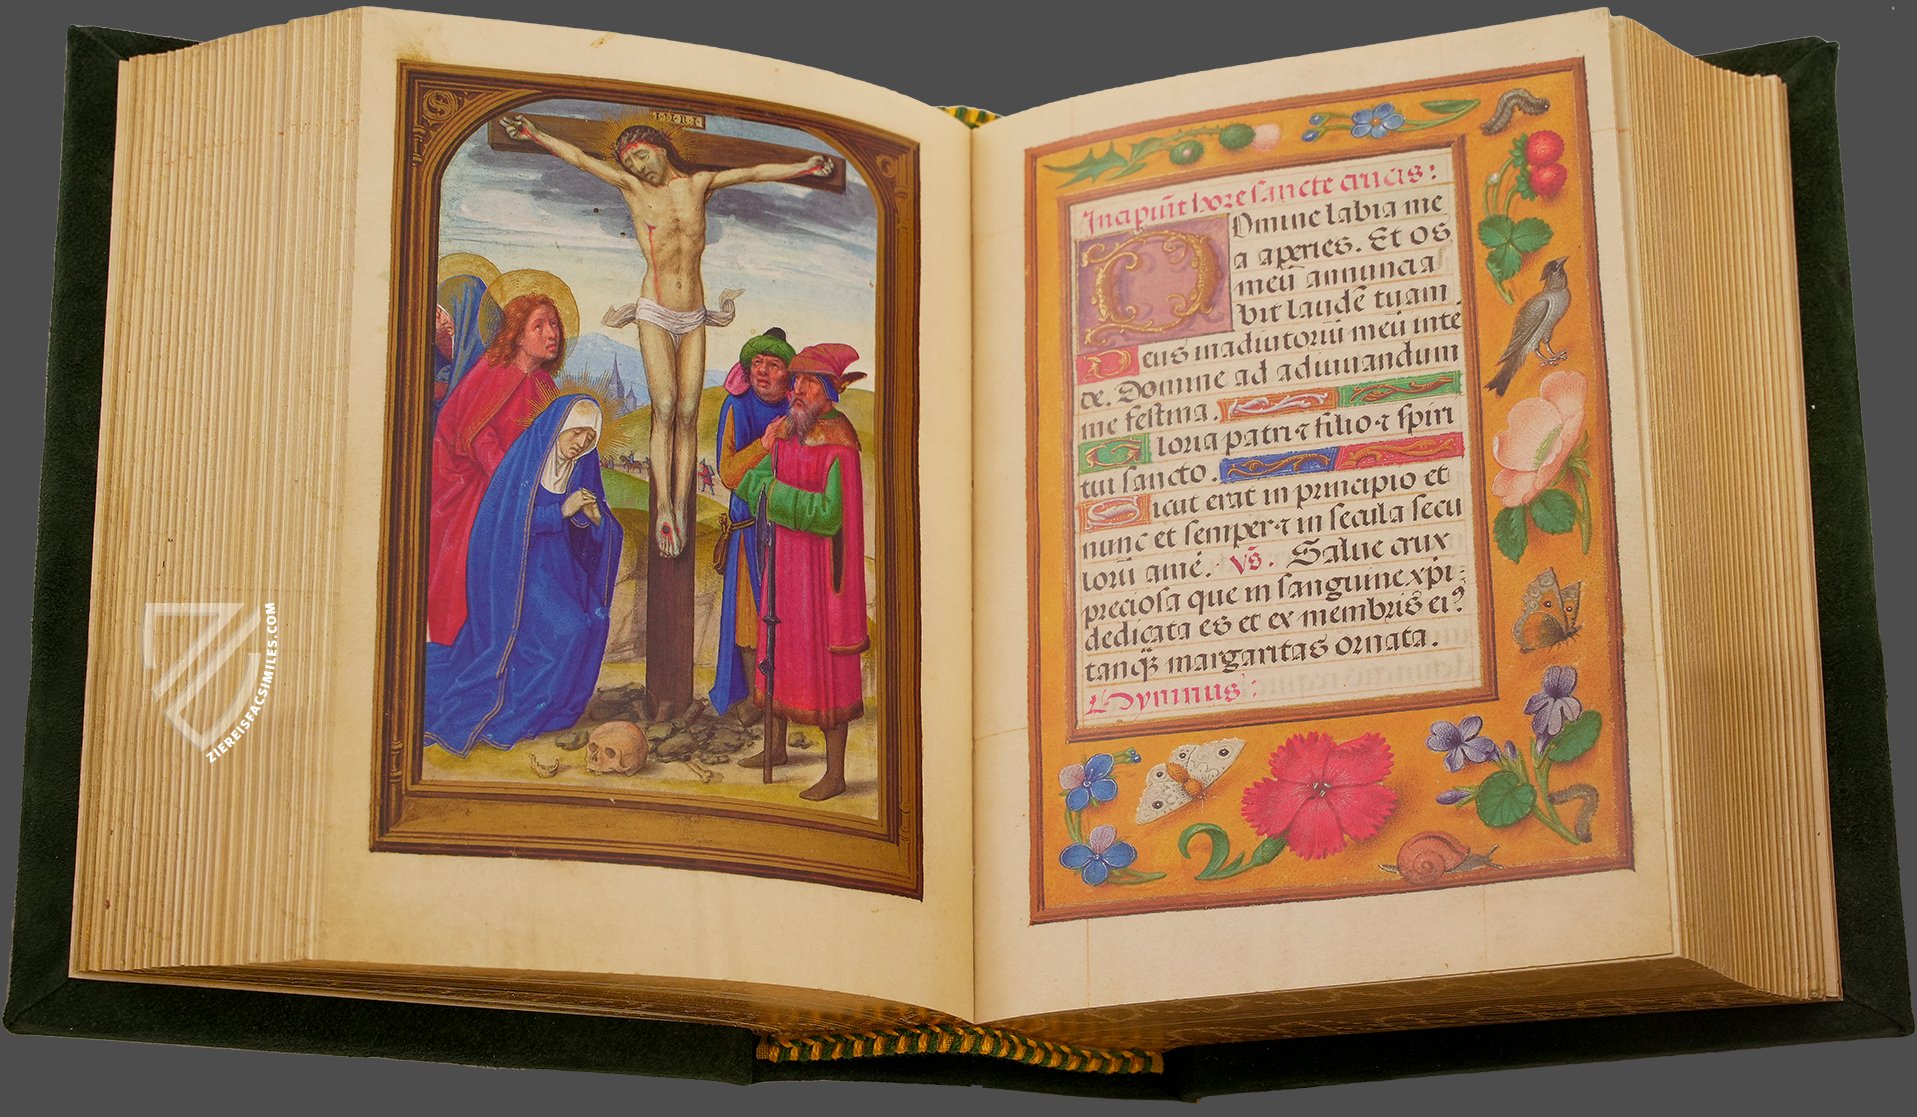 I·N·R·I
Incipiũt hore sancte crucis:
Domine labia me
a aperies. Et os
meũ annuncia
bit laudẽ tuam.
Deus in adiutoriũ meũ inte
de. Domine ad adiuuandum
me festina.
Gloria patri ⁊ filio ⁊ spiri
tui sancto.
Sicut erat in principio et
nunc et semper ⁊ in secula secu
lorũ amẽ. Vs̃. Salue crux
preciosa que in sanguine xp̃i
dedicata es et ex membris ei⁹
tanq̃ margaritas ornata.
Hymnus:
ZIEREISFACSIMILES.COM